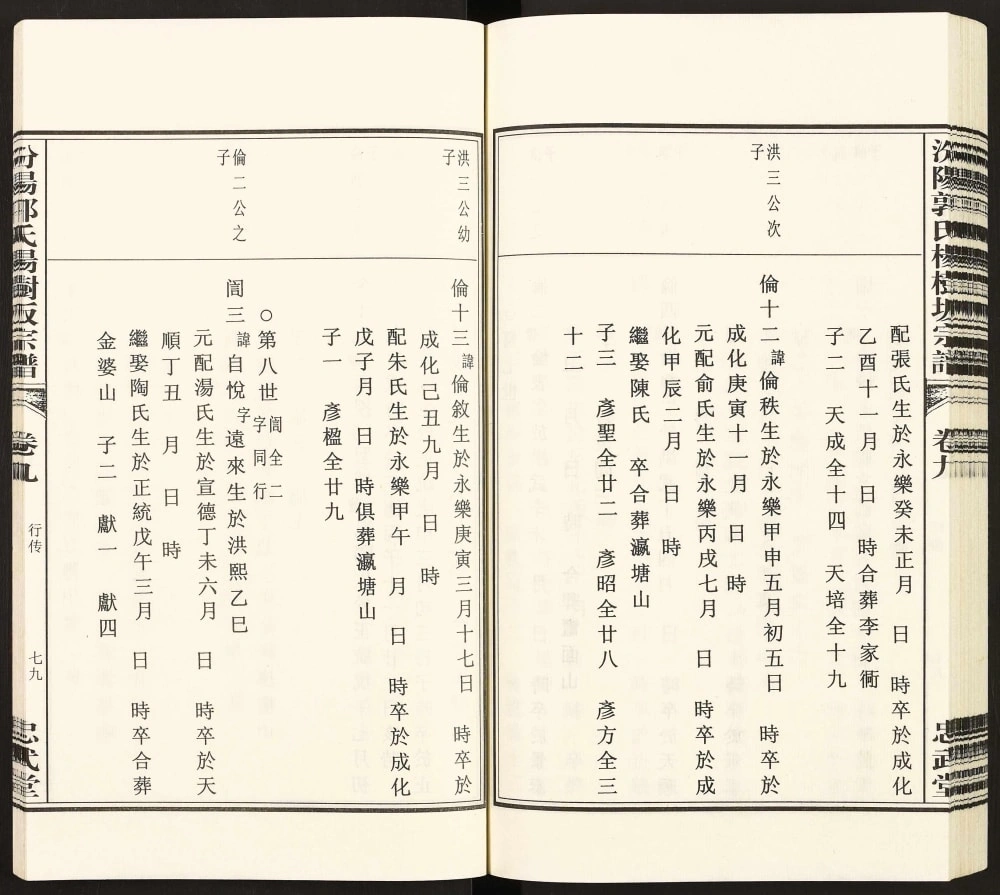 汾陽郭氏楊樹坂宗譜
卷九
忠武堂
配張氏生於永樂癸未正月　日　時卒於成化
乙酉十一月　日　時合葬李家衕
子二　天成全十四　天培全十九
洪三公次
子
倫十二諱倫秩生於永樂甲申五月初五日　時卒於
成化庚寅十一月　日　時
元配俞氏生於永樂丙戌七月　日　時卒於成
化甲辰二月　日　時
繼娶陳氏　卒合葬瀛塘山
子三　彥聖全廿二　彥昭全廿八　彥方全三
十二
洪三公幼
子
倫十三諱倫敘生於永樂庚寅三月十七日　時卒於
成化己丑九月　日　時
配朱氏生於永樂甲午　月　日　時卒於成化
戊子月　日　時俱葬瀛塘山
子一　彥楹全廿九
○第八世誾全二字同行
倫二公之
子
誾三諱自悅字遠來生於洪熙乙巳
元配湯氏生於宣德丁未六月　日　時卒於天
順丁丑　月　日　時
繼娶陶氏生於正統戊午三月　日　時卒合葬
金婆山　子二　獻一　獻四
汾陽郭氏楊樹坂宗譜
卷九
行传
七九
忠武堂